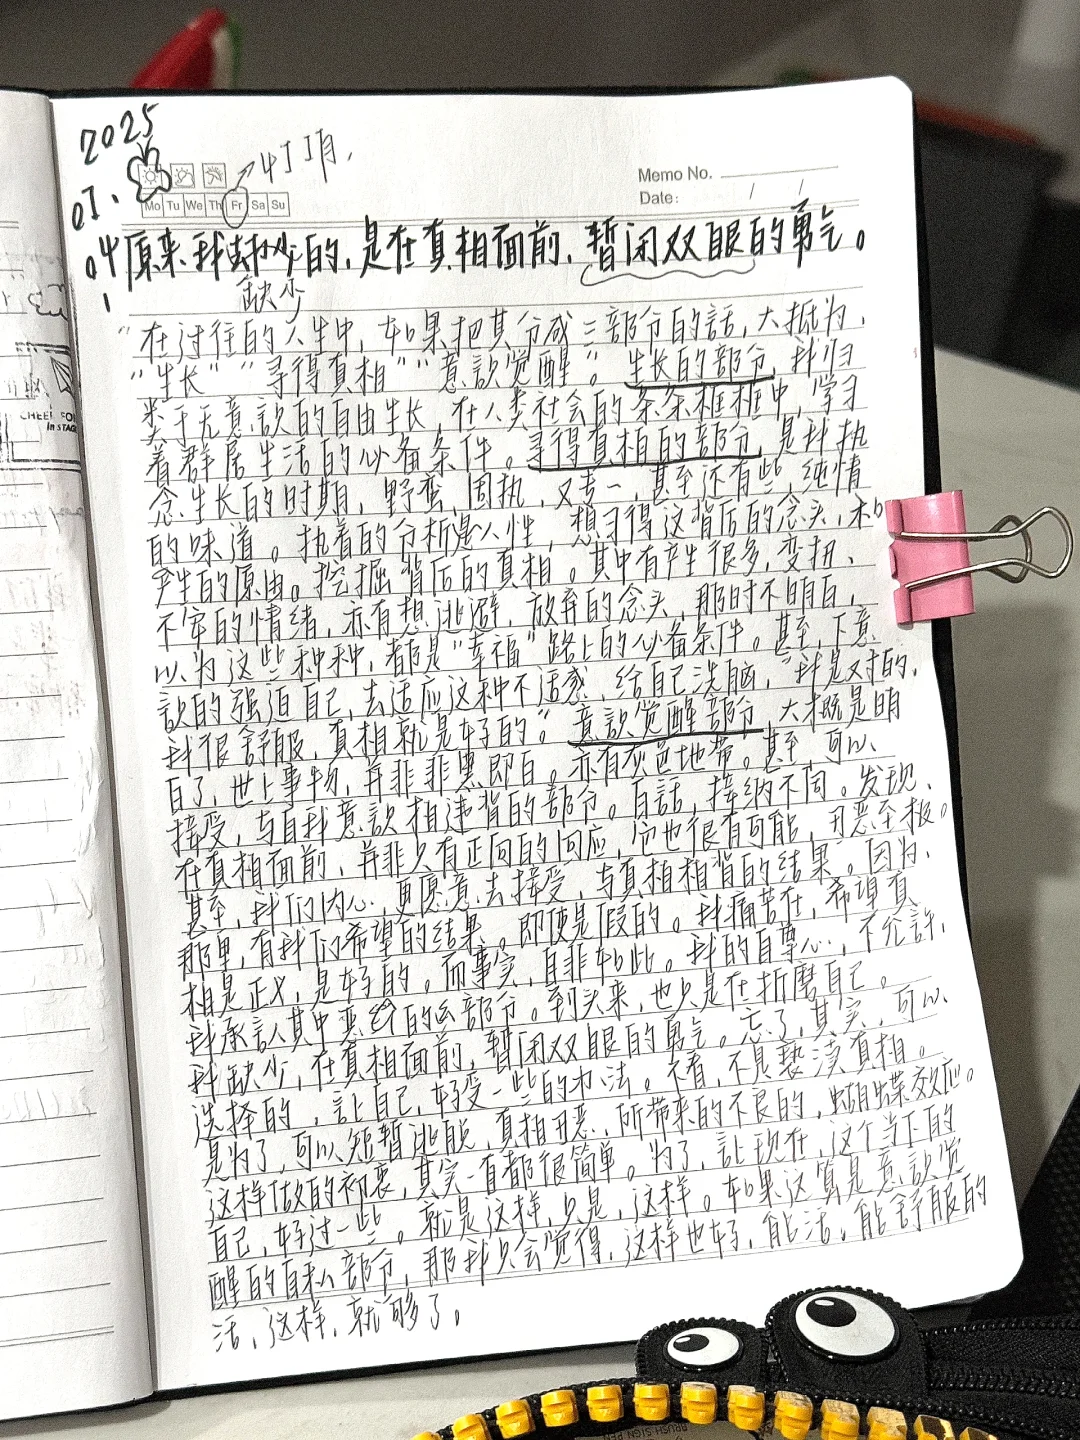 2025
07.
04
Memo No.
Date: / /
Mo Tu We Th Fr Sa Su
原来我缺少的,是在真相面前,暂闭双眼的勇气。
缺少
"在过往的人生中,如果把其分成三部分的話,大抵为、
"生长""寻得真相""意識觉醒"。生长的部分,我归
类于无意識的自由生长,在人类社会的条条框框中,学习
着群居生活的必备条件。寻得真相的部分,是我执
念生长的时期,野蛮,固执,又专一,甚至还有些,纯情
的味道。执着的分析是人性,想习得这背后的念头,和
产生的原由。挖掘背后的真相。其中有产生很多,变扭、
不安的情绪,亦有想逃避,放弃的念头,那时不明白,
以为这些种种,都是"幸福"路上的必备条件。甚至,下意
識的强迫自己,去适应这种不适感,给自己洗脑,"我是对的,
我很舒服,真相就是好的。"意識觉醒部分,大概是明
白了,世上事物,并非非黑即白。亦有灰色地带。甚至,可以、
接受,与自我意識相违背的部分。自話,接纳不同。发现、
在真相面前,并非只有正向的回应,而也很有可能,丑恶至极。
甚至,我们内心,更愿意去接受,与真相相背的结果。因为、
那里,有我们希望的结果。即使是假的。我痛苦在,希望真
相是正义,是好的。而事实,自非如此。我的自尊心,不允許,
我承認其中恶的部分。到头来,也只是在折磨自己。
我缺少,在真相面前,暂闭双眼的勇气。忘了,其实,可以、
选择的,讓自己,好受一些的办法。不看,不是褻渎真相。
是为了,可以短暂逃脱,真相丑恶,所带来的不良的,蝴蝶效应。
这样做的初衷,其实一直都很简单。为了,讓现在,这个当下的
自己,好过一些。就是这样,只是,这样。如果这算是意識觉
醒的自私部分,那我只会觉得,这样也好,能活。能舒服的
活,这样,就够了。